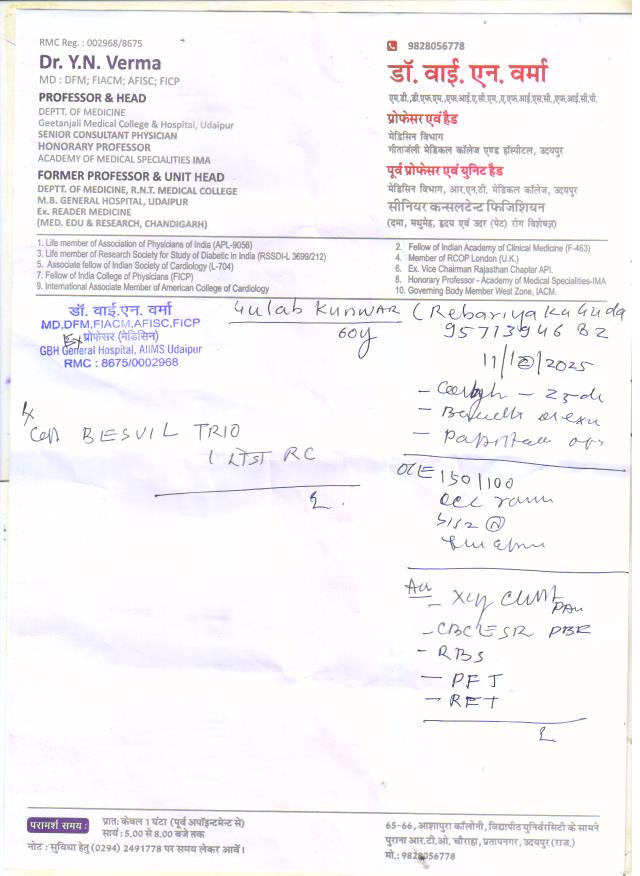 RMC Reg. : 002968/8675
Dr. Y.N. Verma
MD : DFM; FIACM; AFISC; FICP
PROFESSOR & HEAD
DEPTT. OF MEDICINE
Geetanjali Medical College & Hospital, Udaipur
SENIOR CONSULTANT PHYSICIAN
HONORARY PROFESSOR
ACADEMY OF MEDICAL SPECIALITIES IMA
FORMER PROFESSOR & UNIT HEAD
DEPTT. OF MEDICINE, R.N.T. MEDICAL COLLEGE
M.B. GENERAL HOSPITAL, UDAIPUR
Ex. READER MEDICINE
(MED. EDU & RESEARCH, CHANDIGARH)
9828056778
डॉ. वाई. एन. वर्मा
एम.डी.,डी.एफ.एम.,एफ.आई.ए.सी.एम.,ए.एफ.आई.एस.सी.,एफ.आई.सी.पी.
प्रोफेसर एवं हैड
मेडिसिन विभाग
गीतांजली मेडिकल कॉलेज एण्ड हॉस्पीटल, उदयपुर
पूर्व प्रोफेसर एवं युनिट हैड
मेडिसिन विभाग, आर.एन.टी. मेडिकल कॉलेज, उदयपुर
सीनियर कन्सलटेन्ट फिजिशियन
(दमा, मधुमेह, हृदय एवं उदर (पेट) रोग विशेषज्ञ)
1. Life member of Association of Physicians of India (APL-9056)
3. Life member of Research Society for Study of Diabetic in India (RSSDI-L 3699/212)
5. Associate fellow of Indian Society of Cardiology (L-704)
7. Fellow of India College of Physicians (FICP)
9. International Associate Member of American College of Cardiology
2. Fellow of Indian Academy of Clinical Medicine (F-463)
4. Member of RCOP London (U.K.)
6. Ex. Vice Chairman Rajasthan Chapter API.
8. Honorary Professor - Academy of Medical Specialities-IMA
10. Governing Body Member West Zone, IACM.
डॉ. वाई.एन. वर्मा
MD,DFM,FIACM,AFISC,FICP
Ex प्रोफेसर (मेडिसिन)
GBH General Hospital, AIIMS Udaipur
RMC : 8675/0002968
Gulab Kunwar (Rebariya Ka Guda
60y 9571394682
11/12/2025
- Cough -
-
-
Rx
BESVIL TRIO
1 RC
O/E 150/100
-
- CBC ESR PBF
- RBS
- PFT
- RFT
परामर्श समय :
प्रातः केवल 1 घंटा (पूर्व अपॉइन्टमेन्ट से)
सायं : 5.00 से 8.00 बजे तक
नोट : सुविधा हेतु (0294) 2491778 पर समय लेकर आवें।
65-66, आशापुरा कॉलोनी, विद्यापीठ युनिर्वरसिटी के सामने
पुराना आर.टी.ओ. चौराहा, प्रतापनगर, उदयपुर (राज.)
मो.: 9828056778